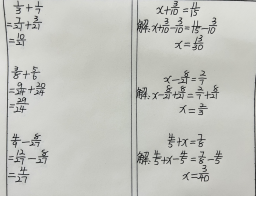 1/3 + 1/7
= 7/21 + 3/21
= 10/21
3/8 + 5/6
= 9/24 + 20/24
= 29/24
4/9 - 8/27
= 12/27 - 8/27
= 4/27
x + 3/10 = 11/15
解: x + 3/10 - 3/10 = 11/15 - 3/10
x = 13/30
x - 8/21 = 2/7
解: x - 8/21 + 8/21 = 2/7 + 8/21
x = 2/3
4/5 + x = 7/8
解: 4/5 + x - 4/5 = 7/8 - 4/5
x = 3/40